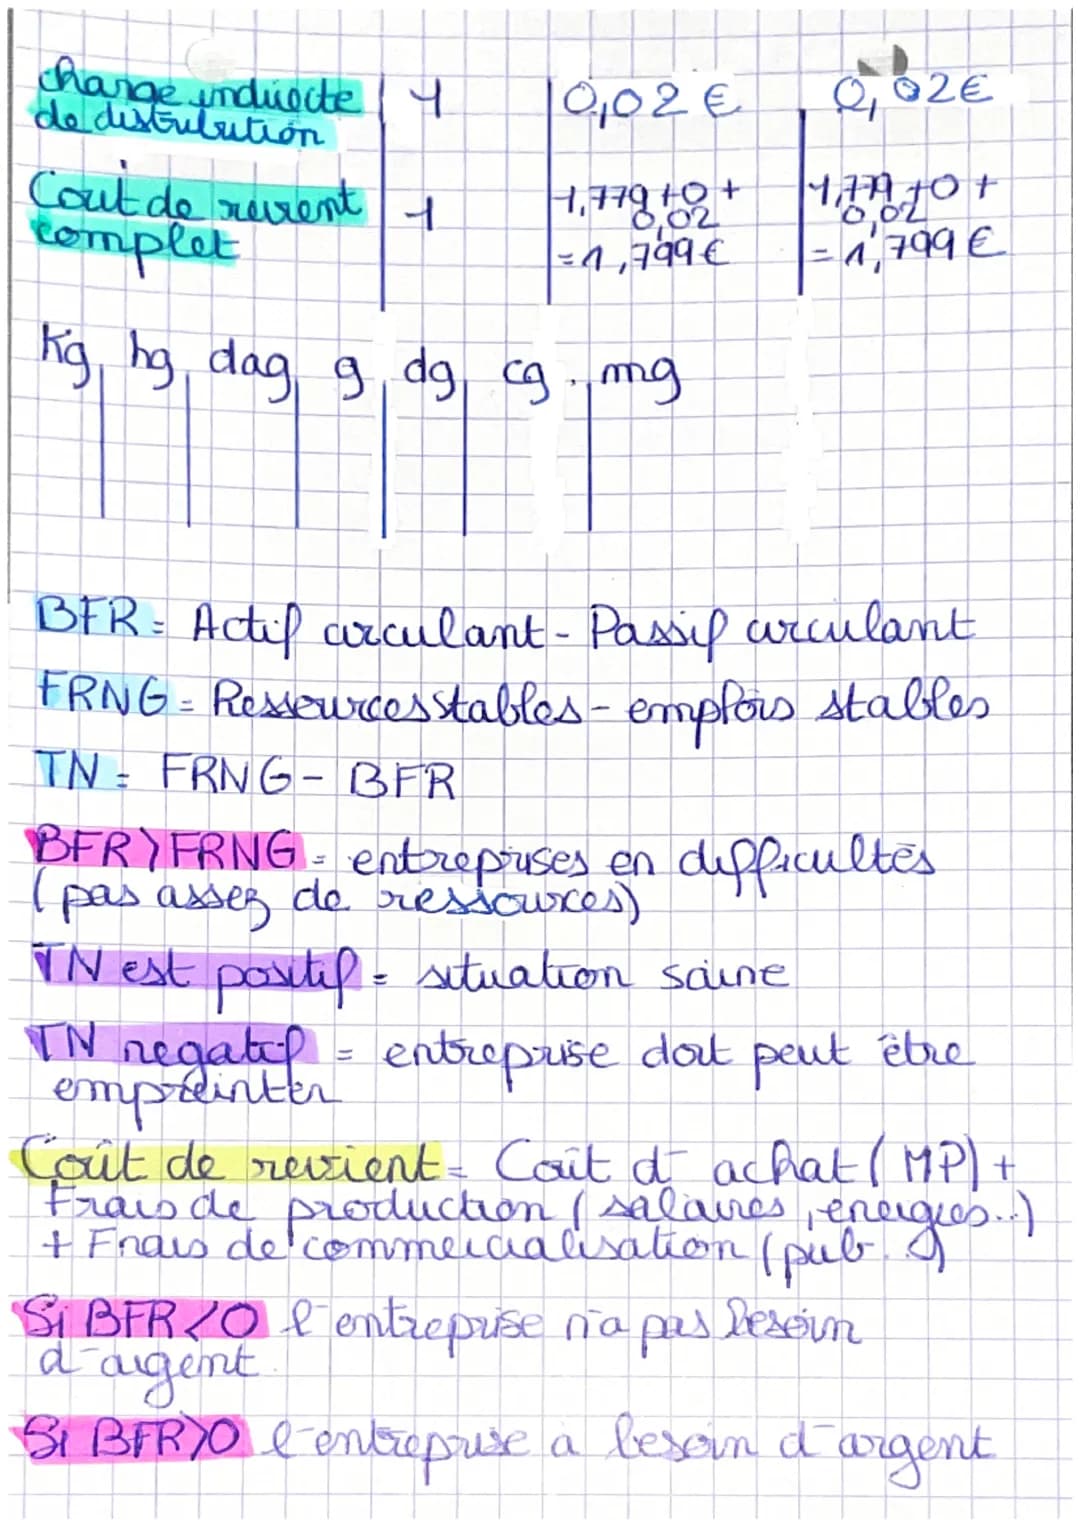 charge indirecte | 1 | 0,02 € | 0,02€
de distribution
Cout de revient | 1 | 1,779 + 0 + | 1,779 + 0 +
complet | 0,02 | 0,02
= 1,799 € | = 1,799 €
Kg hg dag g dg cg mg
BFR = Actif circulant - Passif circulant
FRNG = Ressources stables - emplois stables
TN = FRNG - BFR
BFR > FRNG = entreprises en difficultés
(pas assez de ressources)
TN est positif = situation saine
TN negatif = entreprise doit peut être
empreinter
Coût de revient = Coût d'achat (MP) +
Frais de production (salaires, energies...)
+ Frais de commercialisation (pub..)
Si BFR < 0 l'entreprise n'a pas besoin
d'argent
Si BFR > 0 l'entreprise a besoin d'argent